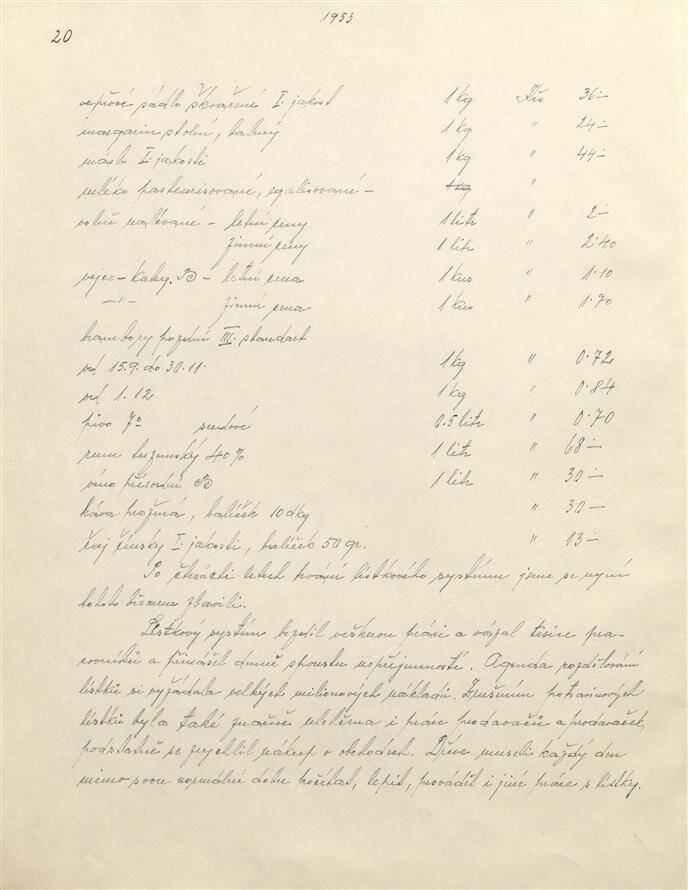 1953
20
vepřové sádlo škvařené I. jakost 1 kg Kčs 36·–
margarin stolní, balený 1 kg " 24·–
máslo I. jakosti 1 kg " 44·–
mléko pasteurisované, egalisované – 1 kg "
volně nalévané – letní ceny 1 litr " 2·–
zimní ceny 1 litr " 2·40
vejce – kateg. B – letní cena 1 kus " 1·10
–"– zimní cena 1 kus " 1·70
brambory pozdní III. standart
od 15.9. do 30.11. 1 kg " 0·72
od 1.12. 1 kg " 0·84
pivo 7° sudové 0.5 litr " 0·70
rum tuzemský 40% 1 litr " 68·–
víno přírodní B 1 litr " 30·–
káva pražená, balíček 10 dkg " 30·–
čaj čínský I. jakosti, balíček 50 gr. " 13·–
Po čtrnácti letech trvání lístkového systému jsme se nyní
tohoto břemene zbavili.
Lístkový systém brzdil veškerou práci a vázal tisíce pra-
covníků a přinášel denně spoustu nepříjemností. Agenda rozdělování
lístků si vyžádala velkých milionových nákladů. Zrušením potravinových
lístků byla také značně ulehčena i práce prodavačů a prodavaček,
podstatně se zrychlil nákup v obchodech. Dříve museli každý den
mimo svou normální dobu počítat, lepit, provádět i jiné práce s lístky.